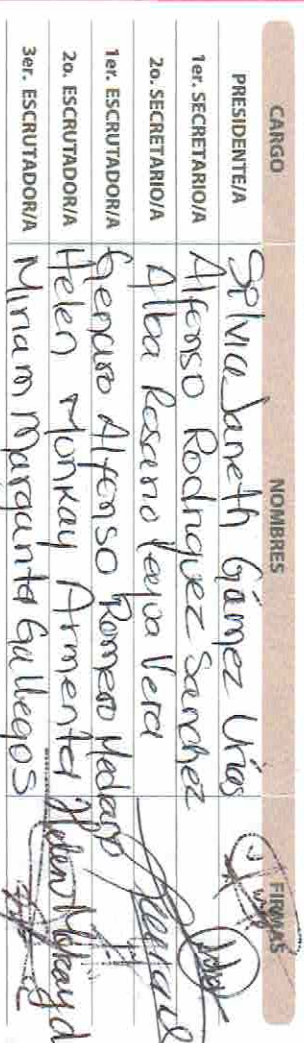 CARGO NOMBRES FIRMAS
PRESIDENTE/A Selvia Janeth Gámez Urías
1er. SECRETARIO/A Alfonso Rodriguez Sanchez
2o. SECRETARIO/A Alba Rosario Leyva Vera
1er. ESCRUTADOR/A Genaro Alfonso Romero Medrano
2o. ESCRUTADOR/A Helen Monkay Armenta Helen Mokay d
3er. ESCRUTADOR/A Miriam Margarita Gallegos